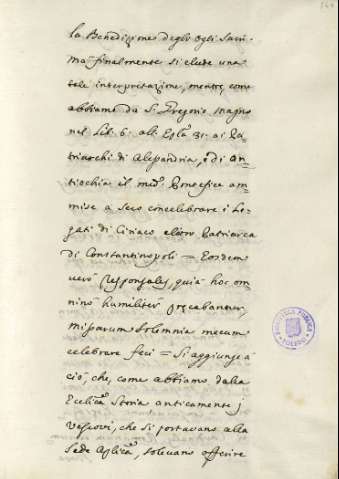 la Benedizione degli ogli Santi.
Ma finalmente si elude una
tale interpretazione, mentre, come
abbiamo da S. Gregorio Magno
nel Lib. 6. all' Epla 31. ai Pa-
triarchi di Alesandria, e di An-
tiochia il med.o Pontefice am-
mise a seco concelebrare i Le-
gati di Ciriaco eletto Patriarca
di Constantinopoli = Eosdem
verò responsales, quia hoc om-
ninò humilitèr precabantur,
missarum solemnia mecum
celebrare feci = Si aggiunge a
ciò, che, come abbiamo dalla
Eccl.ca Storia anticamente i
Vescovi, che si portavano alla
Sede Ap.lica, solevano offerire
BIBLIOTECA PUBLICA
TOLEDO